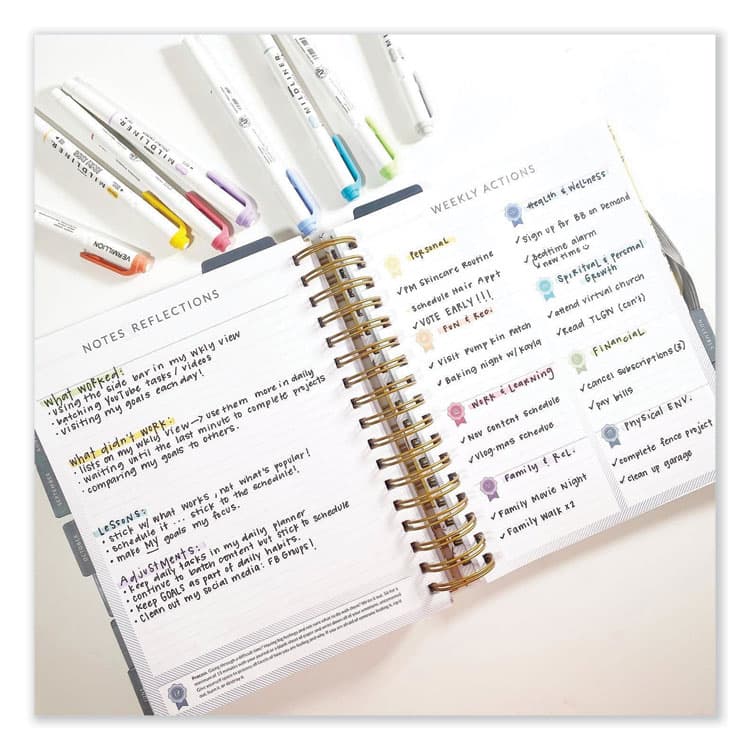 MILDLINER
MILDLINER
MILDLINER
MILDLINER
VERMILLION
NOTES REFLECTIONS
What worked:
• using the side bar in my wkly view
• batching YouTube tasks / videos
• visiting my goals each day!
what didn't work:
• lists on my wkly view → use them more in daily
• waiting until the last minute to complete projects
• comparing my goals to others.
Lessons:
• stick w/ what works, not what's popular!
• schedule it ... stick to the schedule!
• make MY goals my focus.
Adjustments:
• keep daily tasks in my daily planner
• continue to batch content but stick to schedule
• keep GOALS as part of daily habits.
• clean out my social media: FB Groups!
Process.
WEEKLY ACTIONS
Personal
✓PM Skincare Routine
schedule Hair Appt
✓VOTE EARLY!!!
Fun & Rec.
✓ Visit Pumpkin Patch
✓ Baking night w/ Kayla
Work & Learning
✓ Nov content schedule
✓ Vlog-mas schedue
Family & Rel.
✓ Family Movie Night
✓ Family Walk x2
Health & Wellness
✓ sign up for BB on Demand
✓ bedtime alarm
↳ new time
Spiritual & Personal
Growth
✓ attend virtual church
✓ Read TLGW (con't)
Financial
✓ cancel subscriptions (3)
✓ pay bills
Physical ENV.
✓ complete fence project
✓ clean up garage
SEPTEMBER
OCTOBER